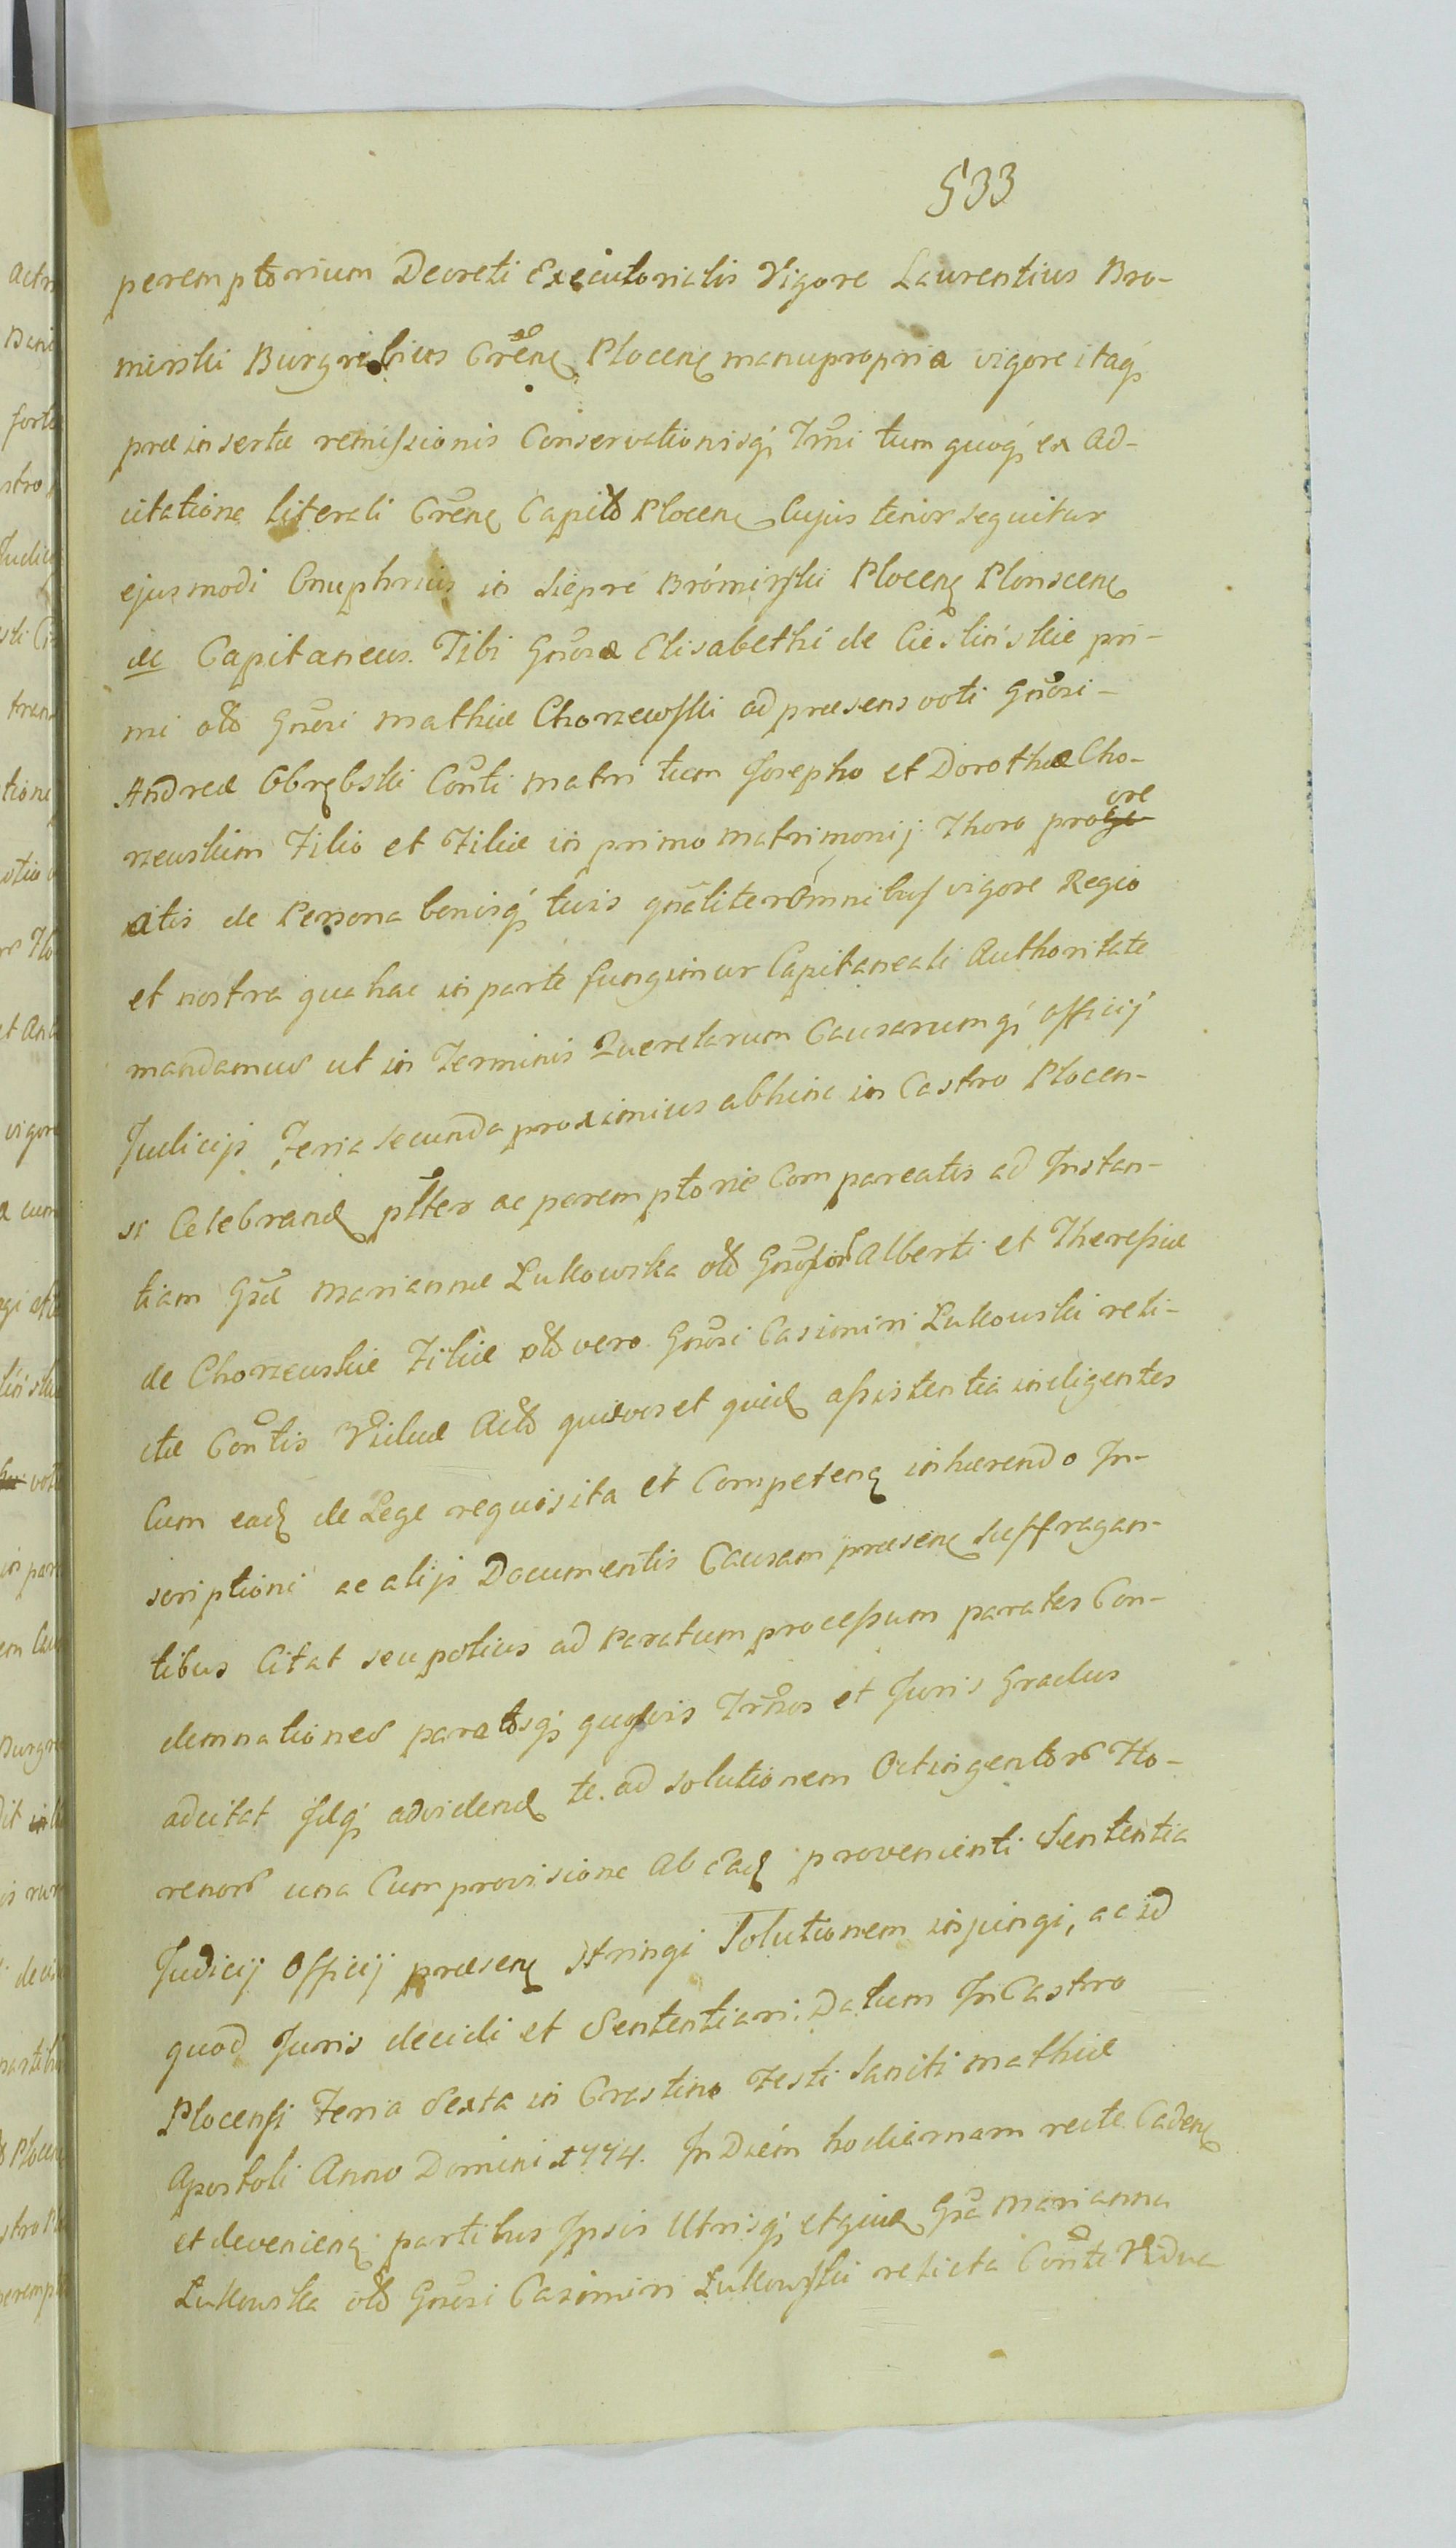 533
peremptorium Decreti Executorialis Vigore Laurentius Bro-
mirski Burgrabius Crens Plocens manupropria vigore itaq
præinsertæ remissionis Conservationisq Trni tum quoq ex Ad-
citatione literali Crens Capit Plocens Cujus tenor sequitur
ejusmodi Onuphrius in Siepre Brómirski Plocens Plonscens
etc Capitaneus. Tibi Gnosæ Elisabethi de Cieslinskie pri-
mi olb Gnosi Mathiæ Chorzewski ad præsens voti Gnosi-
Andreæ Obrębski Conti Matri tum Josepho et Dorotheæ Cho-
rzewskim Filio et Filiæ in primo matrimonij Thoro procre
atis de Persona bonisq tuis gnaliter Omnibus vigore Regio
et nostra qua hac in parte fungimur Capitaneali Authoritate
mandamus ut in Terminis Querelarum Causarumq officij
Judicijs Feria secunda proximius abhinc in Castro Plocen-
si Celebrand pltter ac peremptorie Compareatis ad Instan-
tiam Gsæ Mariannæ Lukowska olb Gnosor Alberti et Theresiæ
de Chorzewskie Filiæ olb vero Gnosi Casimiri Lukowski reli-
ctæ Contis Viduæ Act quævos et quid assistentia indigentes
Cum ead de Lege requisita et Competens inhærendo In-
scriptioni ac alijs Documentis Causam præsens suffragan-
tibus Citat seu potius ad Paratum processum paratas Con-
demnationes paratosq quosvis Trnos et Juris Gradus
adcitat Idq advidend te. ad solutionem Octingentor Flo-
renor una Cum provisione Ab ead provenienti Sententia
Judicij Officij præsens stringi Solutionem inpingi, ac id
quod Juris decidi et Sententiari. Datum In Castro
Plocensi Feria Sexta in Crastino Festi Sancti Mathiæ
Apostoli Anno Domini 1774. In Diem hodiernam recte Cadens
et deveniens partibus Ipsis Utrisq etquid Gsa Marianna
Lukowska olb Gnosi Casimiri Lukowski relicta Conte Vidua